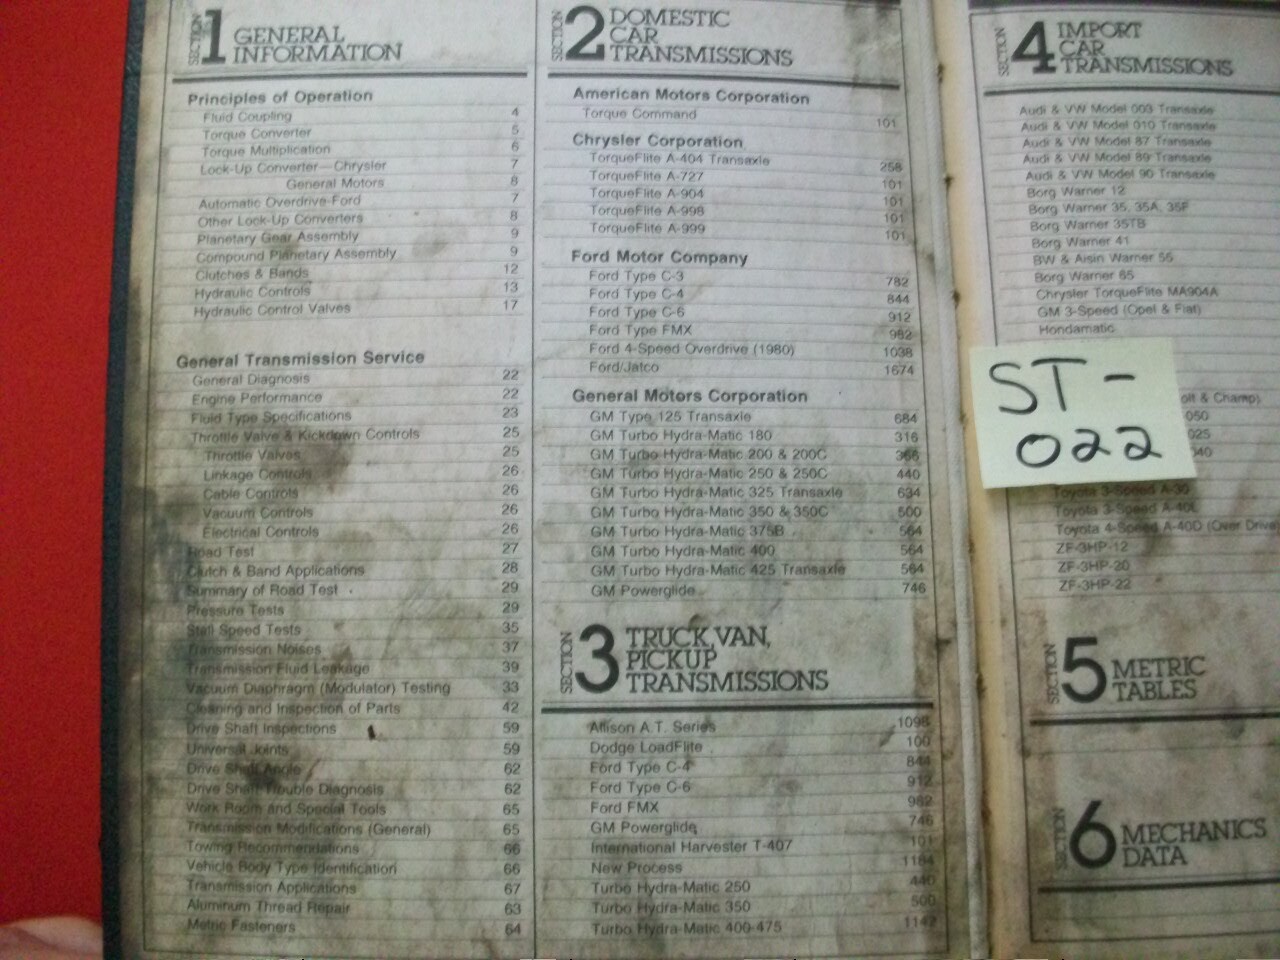 SECTION 1 GENERAL
INFORMATION
Principles of Operation
Fluid Coupling 4
Torque Converter 5
Torque Multiplication 6
Lock-Up Converter—Chrysler 7
General Motors 8
Automatic Overdrive-Ford 7
Other Lock-Up Converters 8
Planetary Gear Assembly 9
Compound Planetary Assembly 9
Clutches & Bands 12
Hydraulic Controls 13
Hydraulic Control Valves 17
General Transmission Service
General Diagnosis 22
Engine Performance 22
Fluid Type Specifications 23
Throttle Valve & Kickdown Controls 25
Throttle Valves 25
Linkage Controls 26
Cable Controls 26
Vacuum Controls 26
Electrical Controls 26
Road Test 27
Clutch & Band Applications 28
Summary of Road Test 29
Pressure Tests 29
Stall Speed Tests 35
Transmission Noises 37
Transmission Fluid Leakage 39
Vacuum Diaphragm (Modulator) Testing 33
Cleaning and Inspection of Parts 42
Drive Shaft Inspections 59
Universal Joints 59
Drive Shaft Angle 62
Drive Shaft Trouble Diagnosis 62
Work Room and Special Tools 65
Transmission Modifications (General) 65
Towing Recommendations 66
Vehicle Body Type Identification 66
Transmission Applications 67
Aluminum Thread Repair 63
Metric Fasteners 64
SECTION 2 DOMESTIC
CAR
TRANSMISSIONS
American Motors Corporation
Torque Command 101
Chrysler Corporation
TorqueFlite A-404 Transaxle 258
TorqueFlite A-727 101
TorqueFlite A-904 101
TorqueFlite A-998 101
TorqueFlite A-999 101
Ford Motor Company
Ford Type C-3 782
Ford Type C-4 844
Ford Type C-6 912
Ford Type FMX 982
Ford 4-Speed Overdrive (1980) 1038
Ford/Jatco 1674
General Motors Corporation
GM Type 125 Transaxle 684
GM Turbo Hydra-Matic 180 316
GM Turbo Hydra-Matic 200 & 200C 366
GM Turbo Hydra-Matic 250 & 250C 440
GM Turbo Hydra-Matic 325 Transaxle 634
GM Turbo Hydra-Matic 350 & 350C 500
GM Turbo Hydra-Matic 375B 564
GM Turbo Hydra-Matic 400 564
GM Turbo Hydra-Matic 425 Transaxle 564
GM Powerglide 746
SECTION 3 TRUCK, VAN,
PICKUP
TRANSMISSIONS
Allison A.T. Series 1098
Dodge LoadFlite 100
Ford Type C-4 844
Ford Type C-6 912
Ford FMX 982
GM Powerglide 746
International Harvester T-407 101
New Process 1184
Turbo Hydra-Matic 250 440
Turbo Hydra-Matic 350 500
Turbo Hydra-Matic 400-475 1142
SECTION 4 IMPORT
CAR
TRANSMISSIONS
Audi & VW Model 003 Transaxle
Audi & VW Model 010 Transaxle
Audi & VW Model 87 Transaxle
Audi & VW Model 89 Transaxle
Audi & VW Model 90 Transaxle
Borg Warner 12
Borg Warner 35, 35A, 35F
Borg Warner 35TB
Borg Warner 41
BW & Aisin Warner 55
Borg Warner 65
Chrysler TorqueFlite MA904A
GM 3-Speed (Opel & Fiat)
Hondamatic
ST-
022
olt & Champ)
050
025
040
Toyota 3-Speed A-30
Toyota 3-Speed A-40L
Toyota 4-Speed A-40D (Over Drive
ZF-3HP-12
ZF-3HP-20
ZF-3HP-22
SECTION 5 METRIC
TABLES
SECTION 6 MECHANICS
DATA